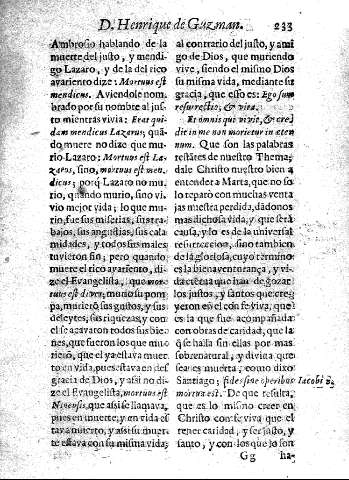 D. Henrique de Guzman. 233
Ambrosio hablando de la
muerte del justo, y mendi-
go Lazaro, y de la del rico
avariento dize: Mortuus est
mendicus. Aviendole nom-
brado por su nombre al jus-
to mientras vivia: Erat qui-
dam mendicus Lazarus; quã-
do muere no dize que mu-
rio Lazaro: Mortuus est La-
zarus, sino, mortuus est men-
dicus; porq̃ Lazaro no mu-
rio, quando murio, sino vi-
vio mejor vida; lo que mu-
rio, fue sus miserias, sus tra-
bajos, sus angustias, sus cala-
midades, y todos sus males
tuvieron fin; pero quando
muere el rico avariento, di-
ze el Evangelista, que mor-
tuus est dives; murio su pom-
pa, muriò sus gustos, y sus
deleytes, sus riquezas, y con
el se acavaron todos sus bie-
nes, que fueron los que mu-
rierõ, que el ya estava muer-
to en vida, pues estava en des
gracia de Dios, y assi no di-
ze el Evangelista, mortuus est
Ninensis, que assi se llamava,
pues en muerte, y en vida es
tava muerto, y assi su muer-
te estava con su misma vida;
al contrario del justo, y ami
go de Dios, que muriendo
vive, siendo el mismo Dios
su misma vida, mediante su
gracia, que esso es: Ego sum
resurrectio, & vita.
Et omnis qui vivit, & cre-
dit in me non morietur in æter-
num. Que son las palabras
restãtes de nuestro Thema;
dale Christo nuestro bien a
entender a Marta, que no so
lo reparò con muchas venta
jas nuestra perdida, dádonos
mas dichosa vida, y que será
causa, y lo es de la universal
resurreccion, sino tambien
de la gloriosa, cuyo termino
es la bienaventurança, y vi-
da eterna que han de gozar
los justos, y santos que cre-
yeron en el con fe viva, que
es la que fue acompañada
con obras de caridad, que la
q̃ se halla sin ellas por mas
sobrenatural, y divina que
sea es muerta, como dixo
Santiago; fides sine operibus Iacobi 2.
mortua est. De que resulta,
que es lo mismo creer en
Christo con fe viva que el
tener caridad, y ser justo, y
santo, y con los que lo son
Gg ha-